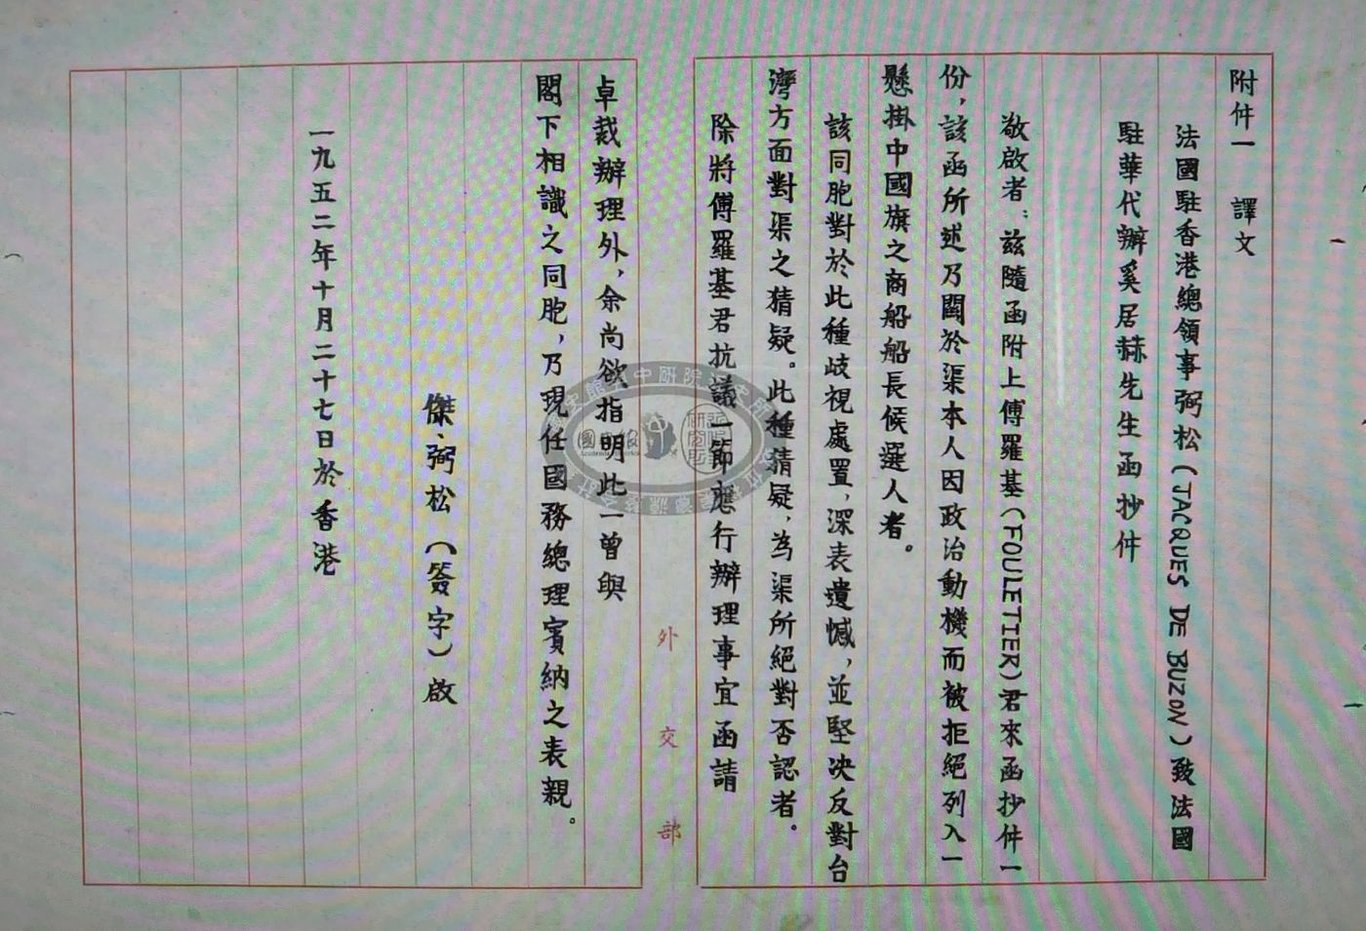 附件一 譯文
法國駐香港總領事弼松(JACQUES DE BUZON)致法國
駐華代辦奚居赫先生函抄件
敬啟者:茲隨函附上傅羅基(FOULETIER)君來函抄件一
份,該函所述乃關於渠本人因政治動機而被拒絕列入一
懸掛中國旗之商船船長候選人者。
該同胞對於此種歧視處置,深表遺憾,並堅決反對台
灣方面對渠之猜疑。此種猜疑,為渠所絕對否認者。
除將傅羅基君抗議一節應行辦理事宜函請
外交部
卓裁辦理外,余尚欲指明此一曾與
閣下相識之同胞,乃現任國務總理賓納之表親。
傑、弼松(簽字)啟
一九五二年十月二十七日於香港